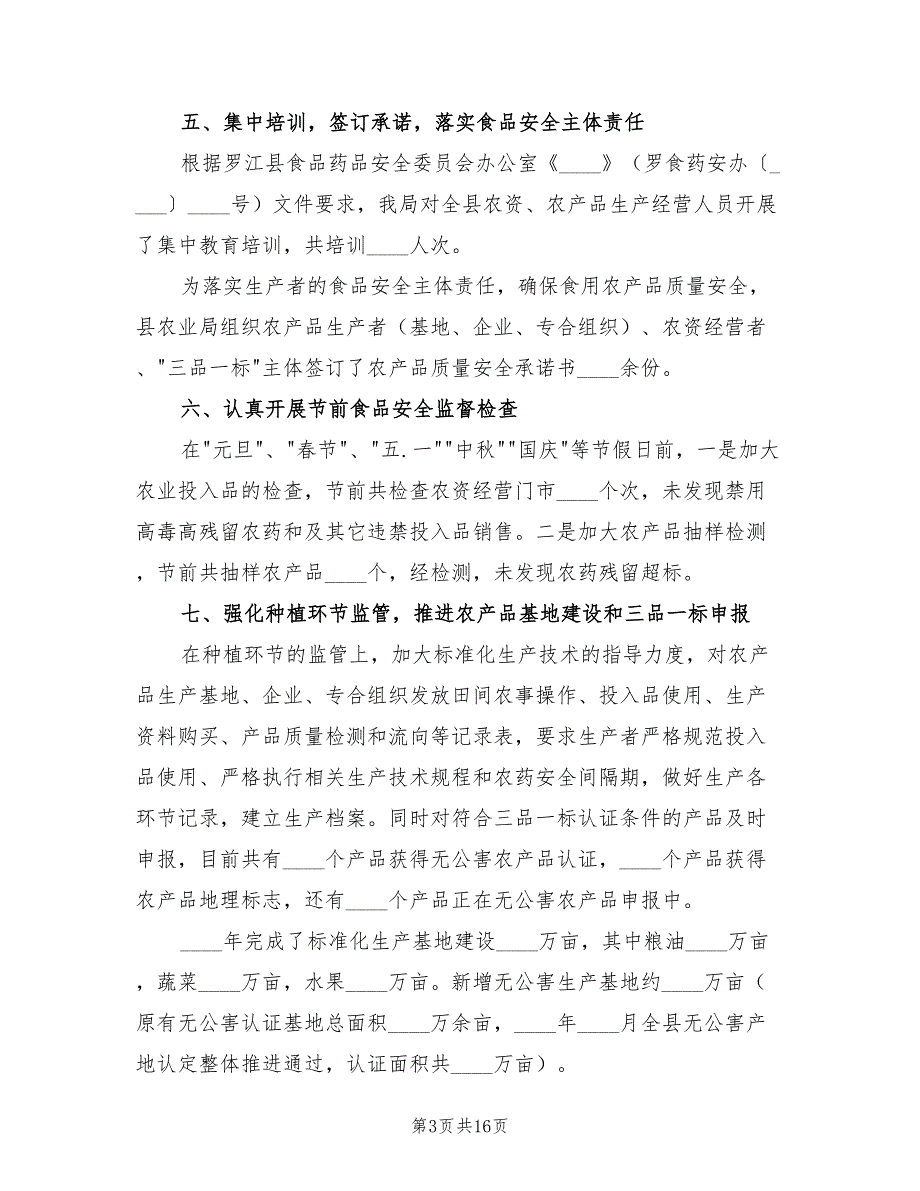 五、集中培训，签订承诺，落实食品安全主体责任
根据罗江县食品药品安全委员会办公室《____》（罗食药安办〔_
___〕____号）文件要求，我局对全县农资、农产品生产经营人员开展
了集中教育培训，共培训____人次。
为落实生产者的食品安全主体责任，确保食用农产品质量安全，
县农业局组织农产品生产者（基地、企业、专合组织）、农资经营者
、"三品一标"主体签订了农产品质量安全承诺书____余份。
六、认真开展节前食品安全监督检查
在"元旦"、"春节"、"五.一""中秋""国庆"等节假日前，一是加大
农业投入品的检查，节前共检查农资经营门市____个次，未发现禁用
高毒高残留农药和及其它违禁投入品销售。二是加大农产品抽样检测
，节前共抽样农产品____个，经检测，未发现农药残留超标。
七、强化种植环节监管，推进农产品基地建设和三品一标申报
在种植环节的监管上，加大标准化生产技术的指导力度，对农产
品生产基地、企业、专合组织发放田间农事操作、投入品使用、生产
资料购买、产品质量检测和流向等记录表，要求生产者严格规范投入
品使用、严格执行相关生产技术规程和农药安全间隔期，做好生产各
环节记录，建立生产档案。同时对符合三品一标认证条件的产品及时
申报，目前共有____个产品获得无公害农产品认证，____个产品获得
农产品地理标志，还有____个产品正在无公害农产品申报中。
____年完成了标准化生产基地建设____万亩，其中粮油____万亩
，蔬菜____万亩，水果____万亩。新增无公害生产基地约____万亩（
原有无公害认证基地总面积____万余亩，____年____月全县无公害产
地认定整体推进通过，认证面积共____万亩）。
第3页共16页